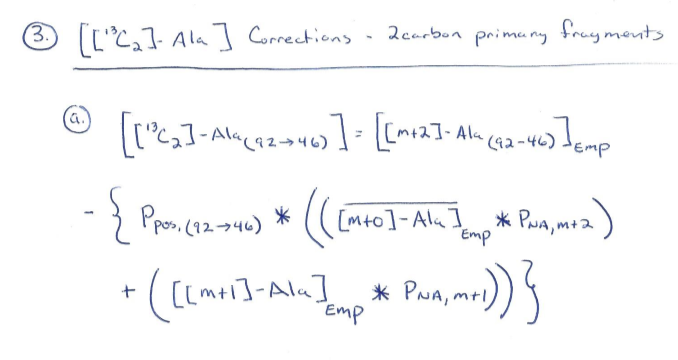 3. [[¹³C₂]- Ala] Corrections - 2carbon primary fragments
a. [[¹³C₂]-Ala(92→46)] = [[m+2]-Ala(92-46)]Emp
- { Ppos,(92→46) * (([m+0]-Ala]Emp * PNA,m+2)
+ ([[m+1]-Ala]Emp * PNA,m+1)) }